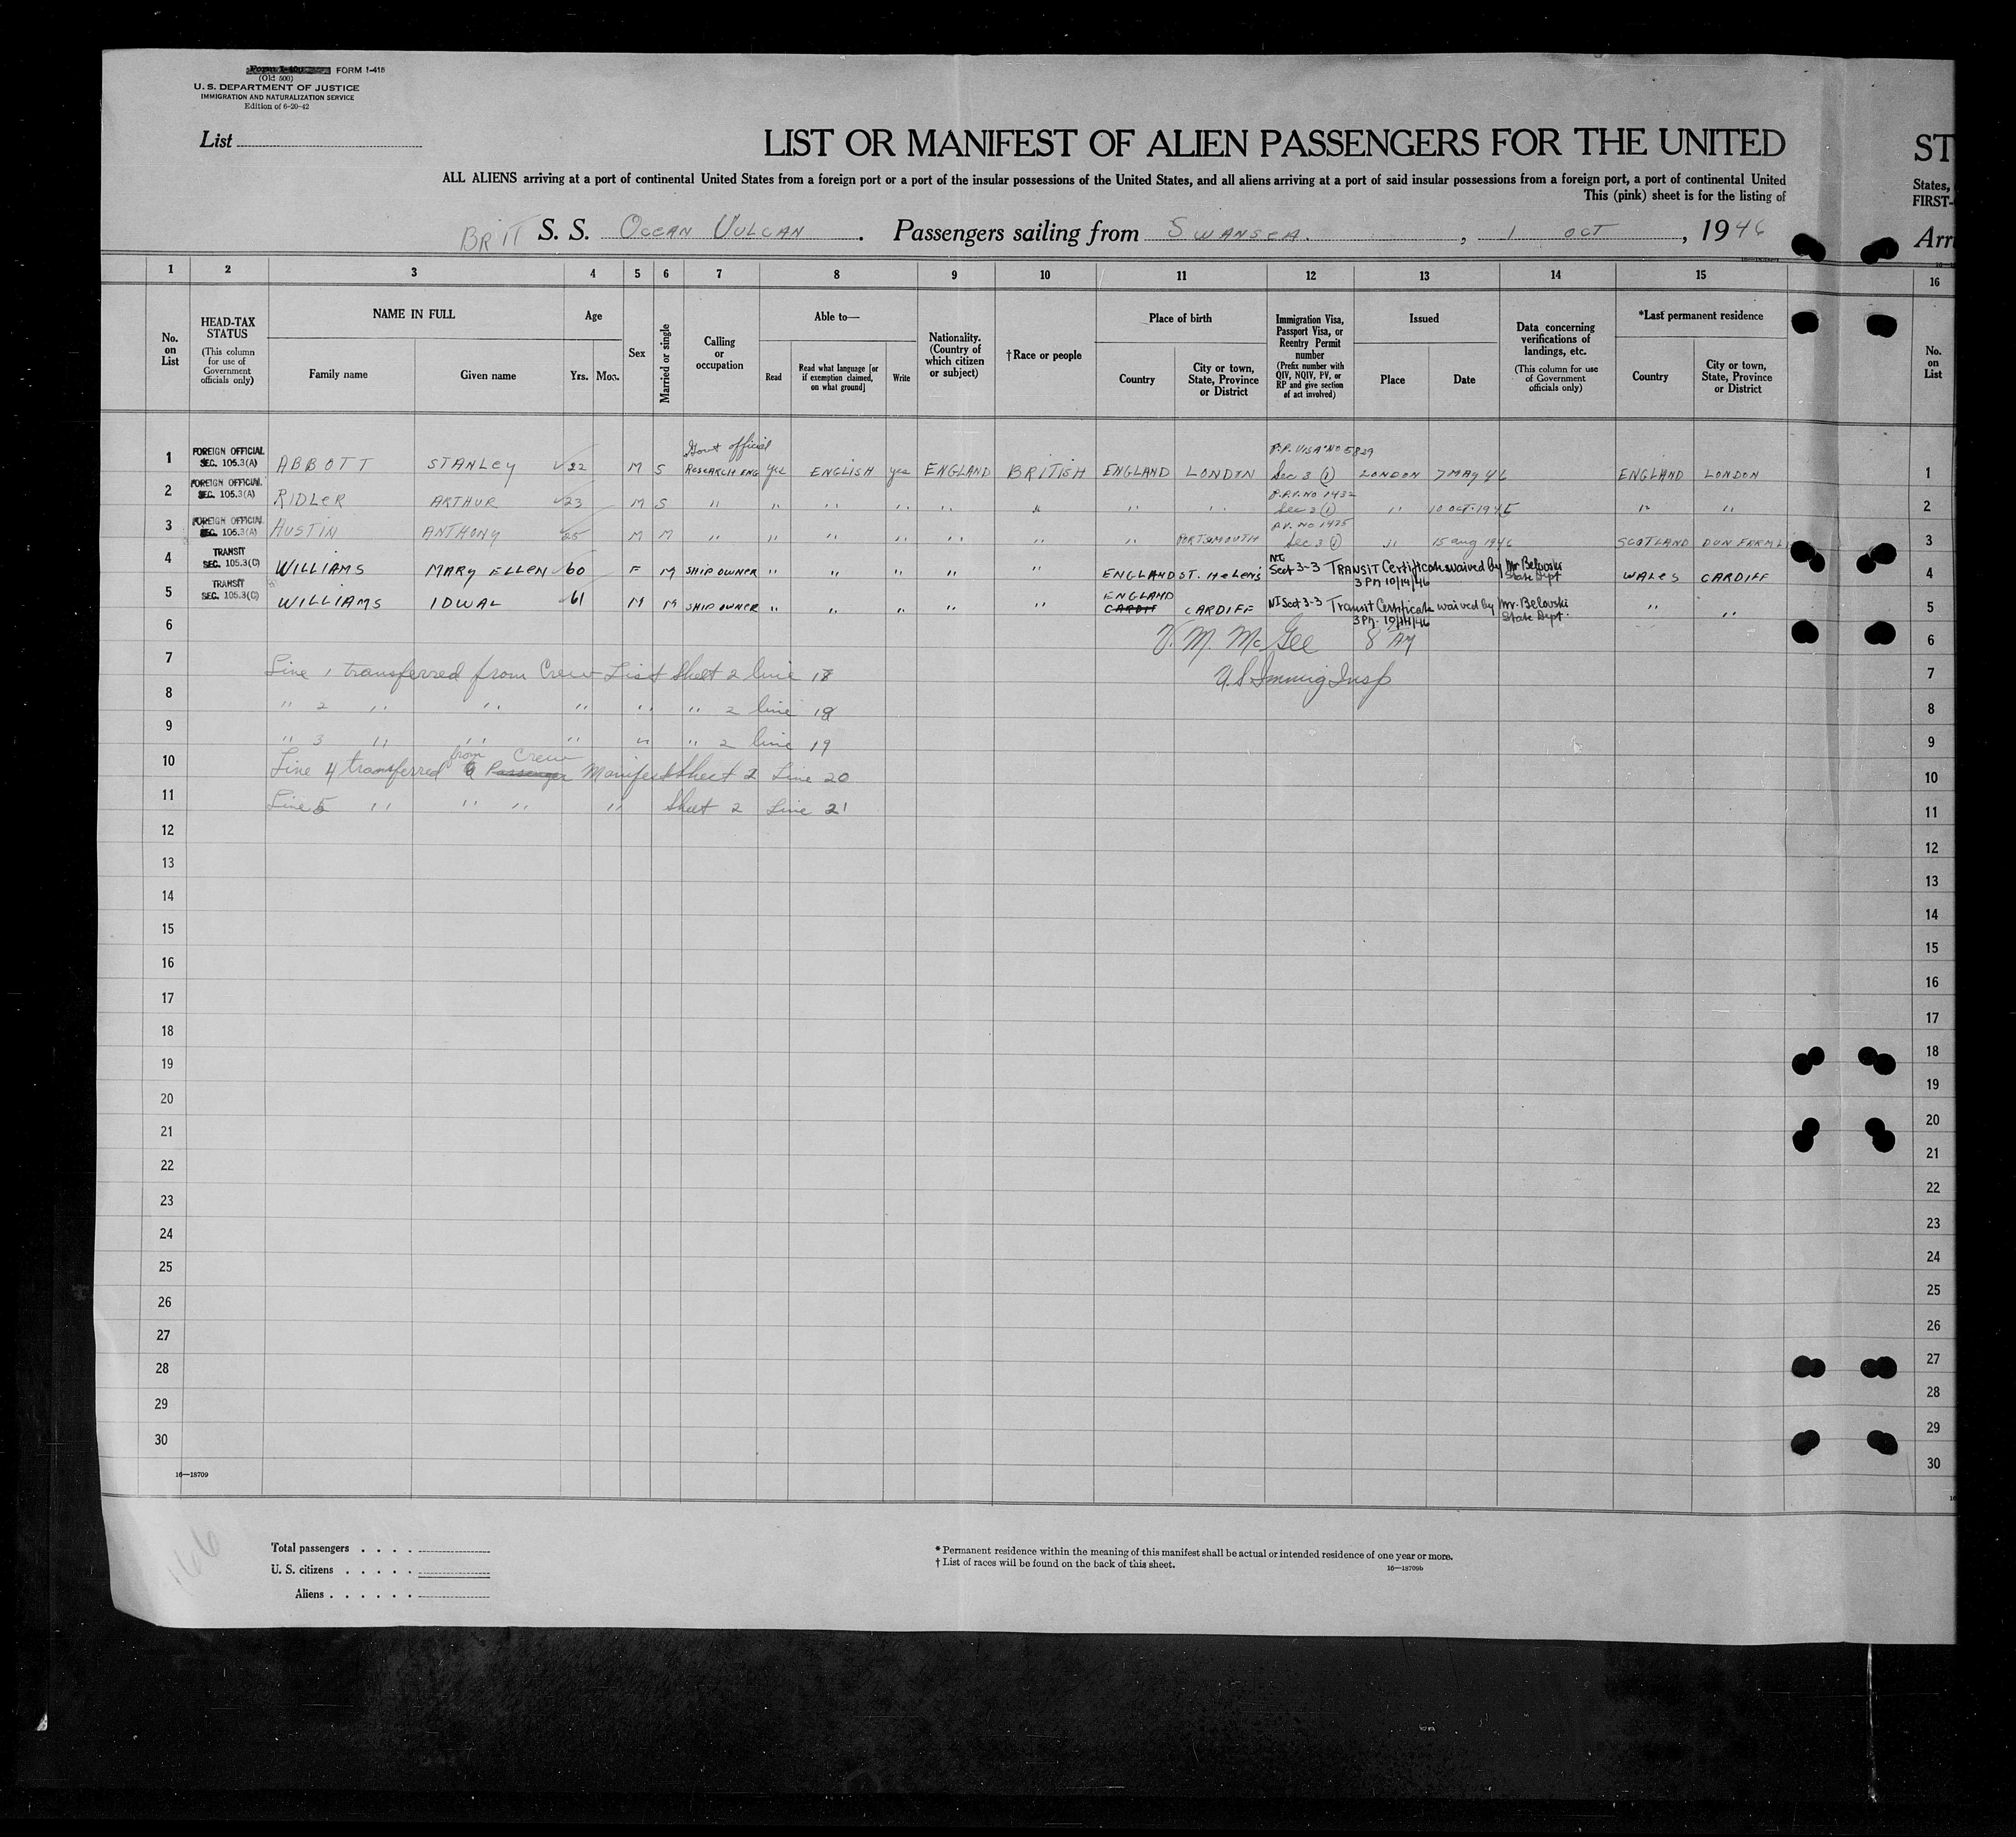 Form I-400 FORM I-415
(Old 500)
U. S. DEPARTMENT OF JUSTICE
IMMIGRATION AND NATURALIZATION SERVICE
Edition of 6-20-42
List
LIST OR MANIFEST OF ALIEN PASSENGERS FOR THE UNITED
ST
ALL ALIENS arriving at a port of continental United States from a foreign port or a port of the insular possessions of the United States, and all aliens arriving at a port of said insular possessions from a foreign port, a port of continental United
States,
This (pink) sheet is for the listing of
FIRST-
BRIT S. S. OCEAN VULCAN. Passengers sailing from SWANSEA., 1 OCT, 1946
Arri
1 2 3 4 5 6 7 8 9 10 11 12 13 14 15 16
No. on List
HEAD-TAX STATUS
(This column for use of Government officials only)
NAME IN FULL
Family name
Given name
Age
Yrs. Mos.
Sex
Married or single
Calling or occupation
Able to—
Read
Read what language [or if exemption claimed, on what ground]
Write
Nationality. (Country of which citizen or subject)
†Race or people
Place of birth
Country
City or town, State, Province or District
Immigration Visa, Passport Visa, or Reentry Permit number
(Prefix number with QIV, NQIV, PV, or RP and give section of act involved)
Issued
Place
Date
Data concerning verifications of landings, etc.
(This column for use of Government officials only)
*Last permanent residence
Country
City or town, State, Province or District
No. on List
Govt official P.P. VISA NO 5829
1 FOREIGN OFFICIAL SEC. 105.3(A) ABBOTT STANLEY 22 M S RESEARCH ENG yes ENGLISH yes ENGLAND BRITISH ENGLAND LONDON Sec 3 (1) LONDON 7 MAY 46 ENGLAND LONDON 1
P.P.V. NO 1432
2 FOREIGN OFFICIAL SEC. 105.3(A) RIDLER ARTHUR 23 M S " " " " " " " " Sec 3 (1) " 10 OCT. 1945 " " 2
P.V. NO 1475
3 FOREIGN OFFICIAL SEC. 105.3(A) AUSTIN ANTHONY 25 M M " " " " " " " PORTSMOUTH Sec 3 (1) " 15 Aug 1946 SCOTLAND DUNFERML 3
4 TRANSIT SEC. 105.3(C) WILLIAMS MARY ELLEN 60 F M SHIP OWNER " " " " " ENGLAND ST. HELENS NI Sect 3-3 TRANSIT Certificate waived by Mr Belovski State Dept 3 PM 10/14/46 WALES CARDIFF 4
5 TRANSIT SEC. 105.3(C) WILLIAMS IDWAL 61 M M SHIP OWNER " " " " " ENGLAND CARDIFF CARDIFF NI Sect 3-3 Transit Certificate waived by Mr. Belovski State Dept. 3 PM. 10/14/46 " " 5
6 V. M. McGee 8 AM 6
7 Line 1 transferred from Crew List Sheet 2 line 17 U.S Immig Insp 7
8 " 2 " " " " " 2 line 18 8
9 " 3 " " " " " 2 line 19 9
from Crew
10 Line 4 transferred Passenger Manifest Sheet 2 Line 20 10
11 Line 5 " " " " Sheet 2 Line 21 11
12 12
13 13
14 14
15 15
16 16
17 17
18 18
19 19
20 20
21 21
22 22
23 23
24 24
25 25
26 26
27 27
28 28
29 29
30 30
16—18709
166
Total passengers . . . .
U. S. citizens . . . . .
Aliens . . . . . .
* Permanent residence within the meaning of this manifest shall be actual or intended residence of one year or more.
† List of races will be found on the back of this sheet.
16—18709b